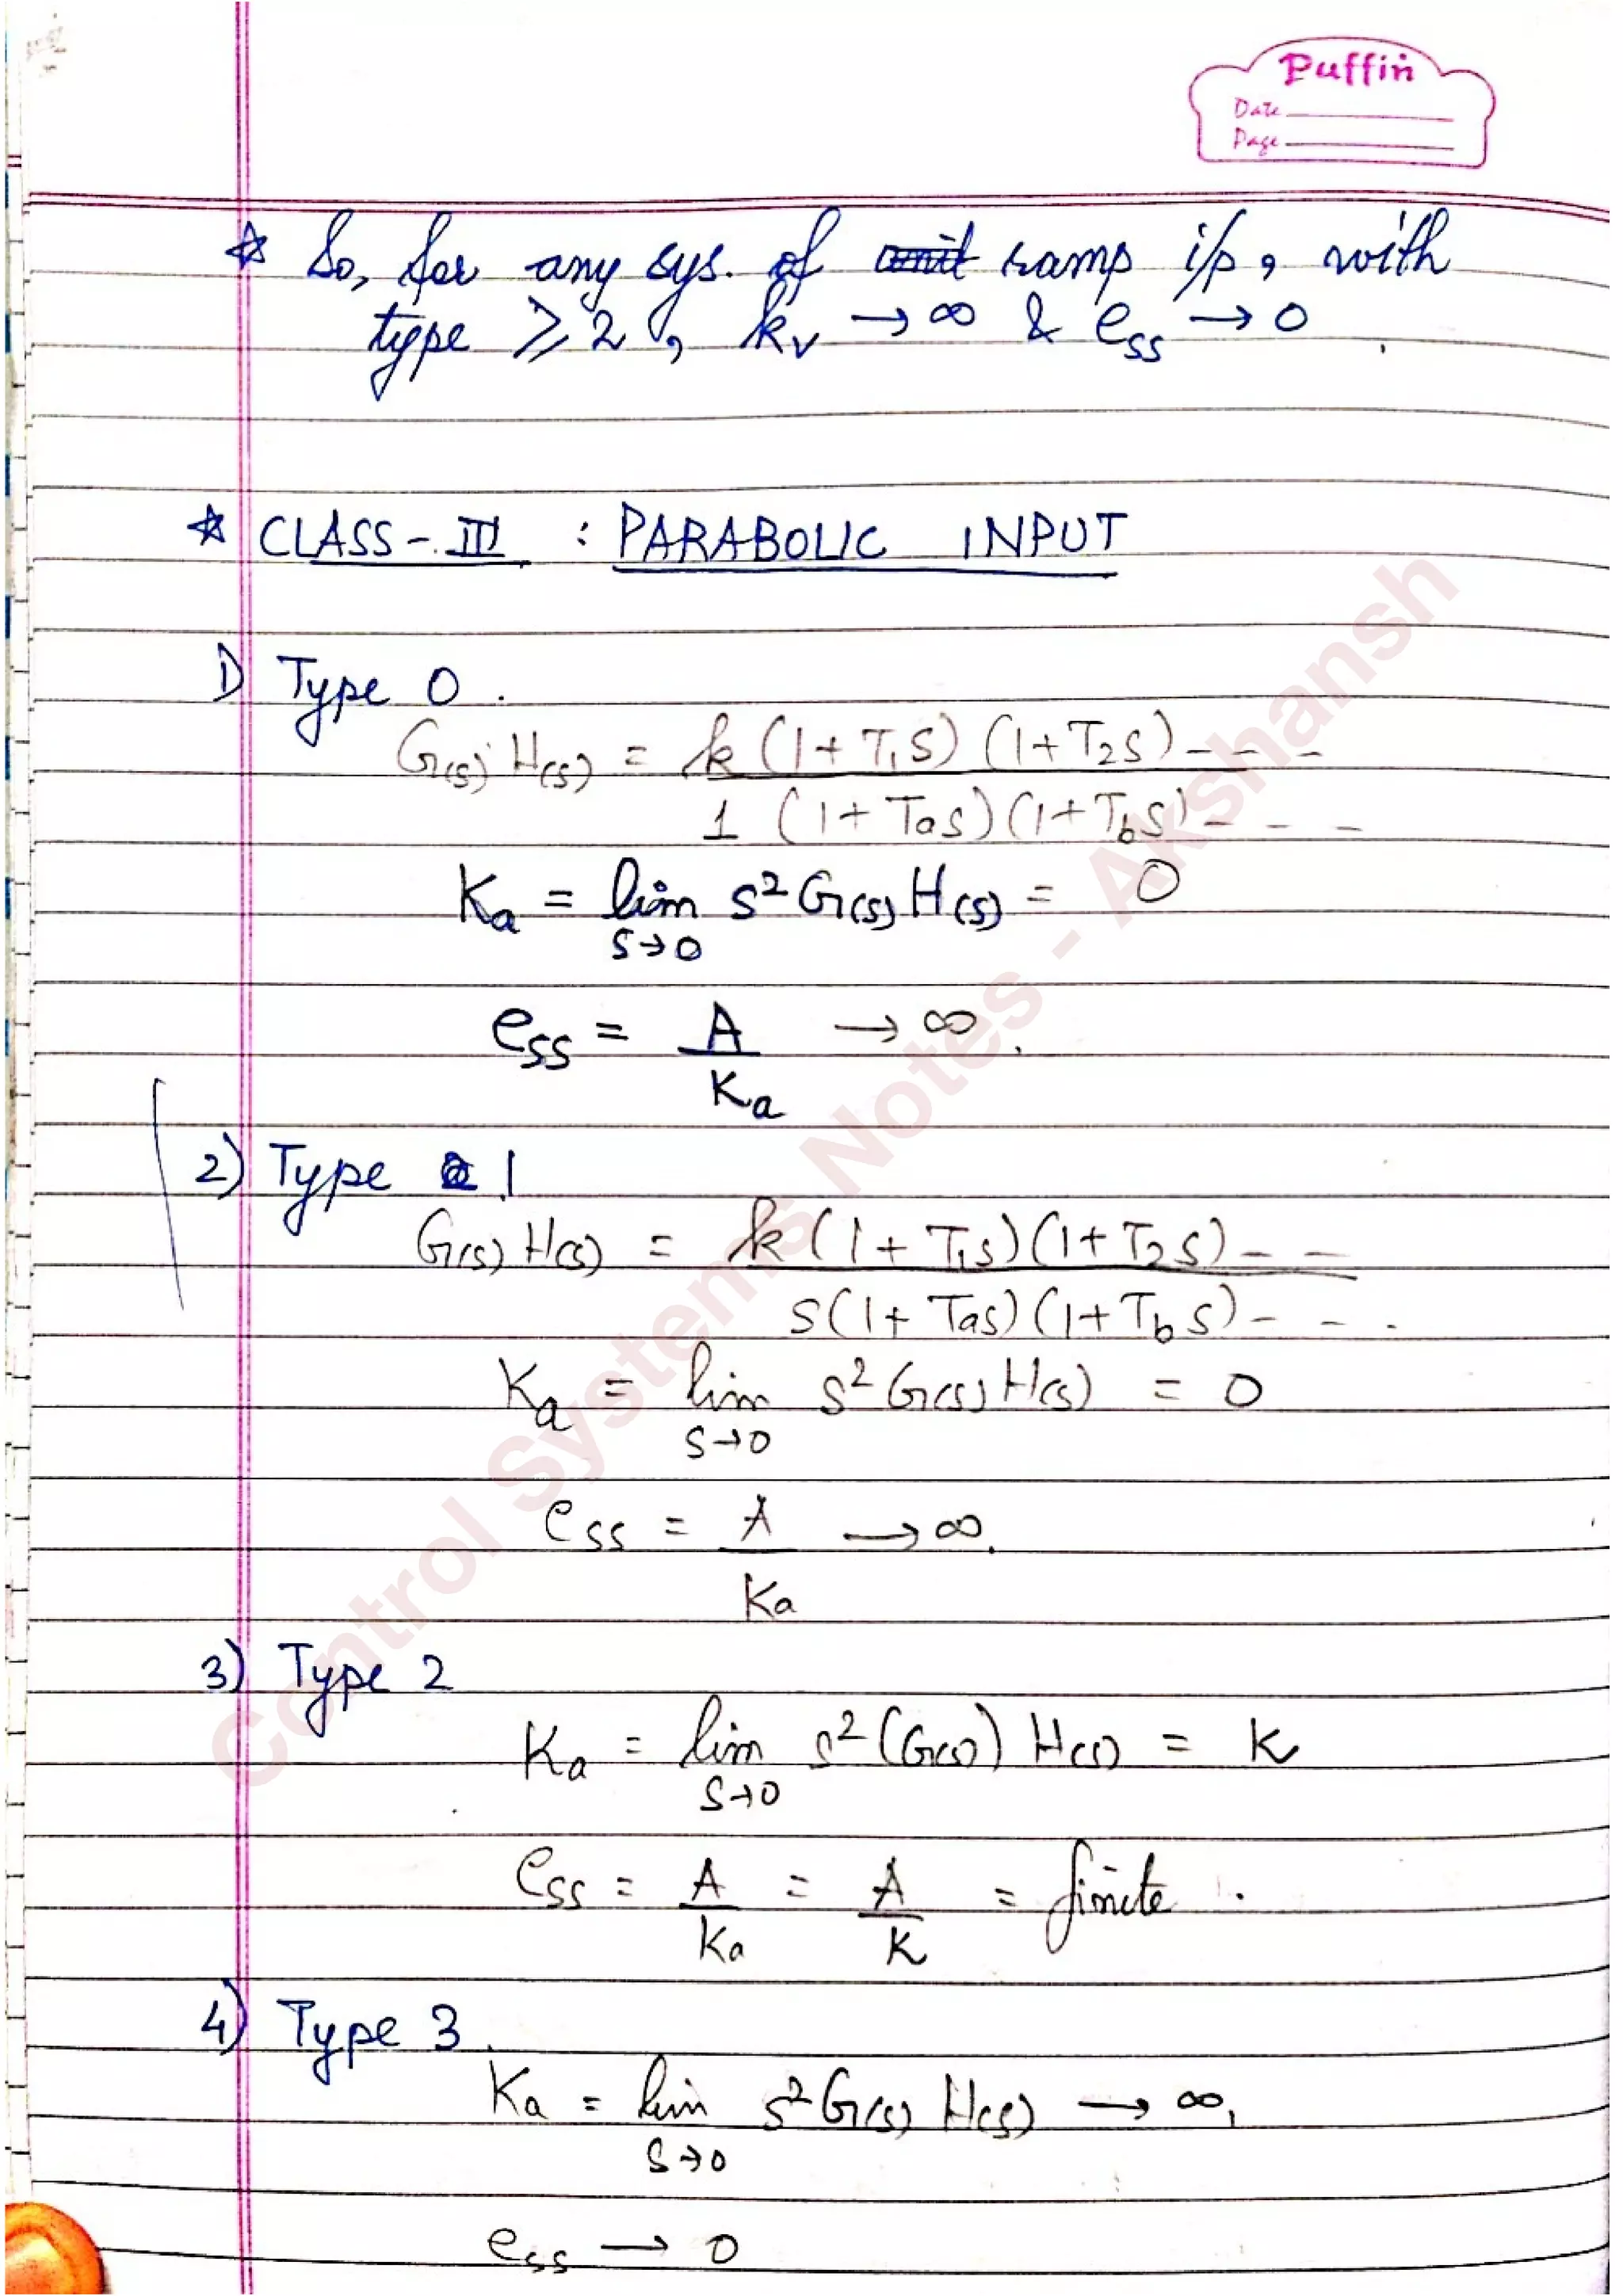 Puffin
Date
Page
☆ So, for any sys. of unit ramp i/p, with
type ≥ 2, kv → ∞ & ess → 0
☆ CLASS-III : PARABOLIC INPUT
1) Type 0.
G(s) H(s) = k (1+T1S) (1+T2S) - - -
1 (1+Tas) (1+TbS) - - -
Ka = lim s²G(s) H(s) = 0
s→0
ess = A → ∞.
Ka
2) Type 2 1
G(s) H(s) = k (1+T1s) (1+T2s) - -
s(1+Tas) (1+Tbs) - - -
Ka = lim s²G(s) H(s) = 0
s→0
ess = A → ∞.
Ka
3) Type 2
Ka = lim s²(G(s)) H(s) = K
s→0
ess = A = A = finite.
Ka K
4) Type 3.
Ka = lim s²G(s) H(s) → ∞,
s→0
ess → 0
Control Systems Notes - Akshansh